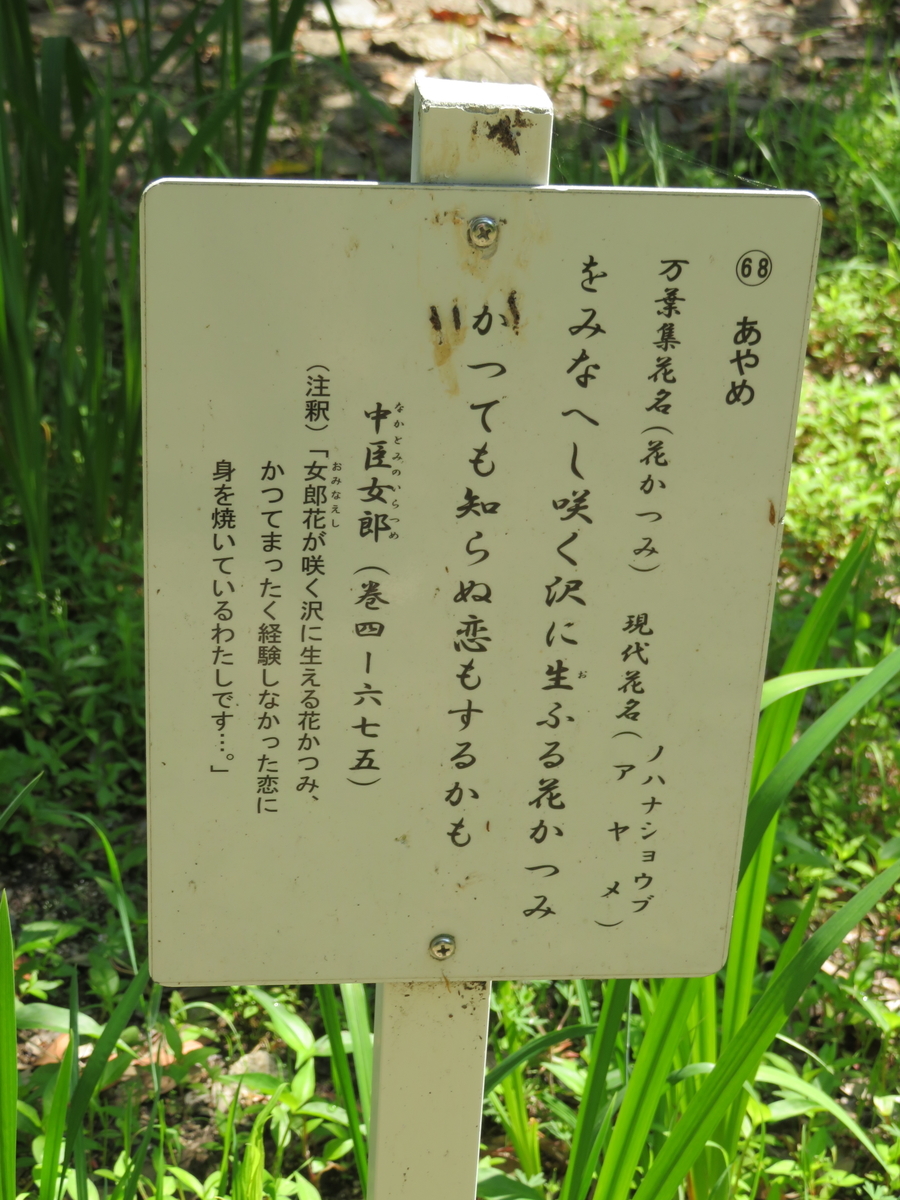 68 あやめ
万葉集花名（花かつみ） 現代花名（ノハナショウブ アヤメ）
をみなへし咲く沢に生ふる花かつみ
お
かつても知らぬ恋もするかも
中臣女郎（巻四ー六七五）
なかとみのいらつめ
（注釈）「女郎花が咲く沢に生える花かつみ、
おみなえし
かつてまったく経験しなかった恋に
身を焼いているわたしです…。」